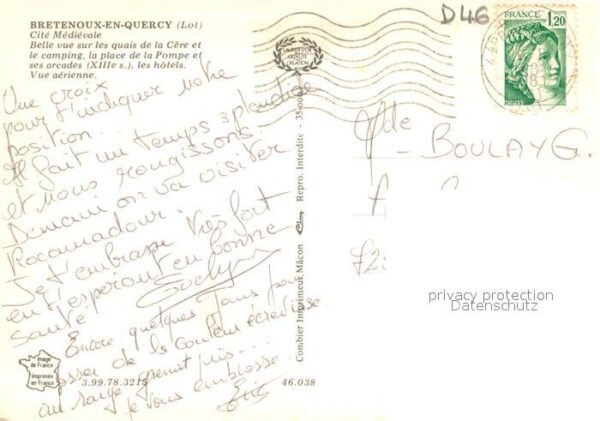 BRETENOUX-EN-QUERCY (Lot)
Cité Médiévale
Belle vue sur les quais de la Cère et
le camping, la place de la Pompe et
ses arcades (XIIIe s.), les hôtels.
Vue aérienne.
Une croix
pour t'indiquer notre
position.
Il fait un temps splendide
et nous rougissons
Demain on va visiter
Rocamadour.
Je t'embrasse très fort
en t'espérant en bonne
santé
Evelyne
Encre quelques jours pour
passer de la couleur écrevisse
au rouge grenat puis...
je vous embrasse.
Eric
Image
de France
Imprimée
en France
3.99.78.3215
46.038
Combier Imprimeur Mâcon
Cim
Repro. Interdite - 35-00
D46
FRANCE
1,20
POSTES
Mde
BOULAY G.
privacy protection
Datenschutz